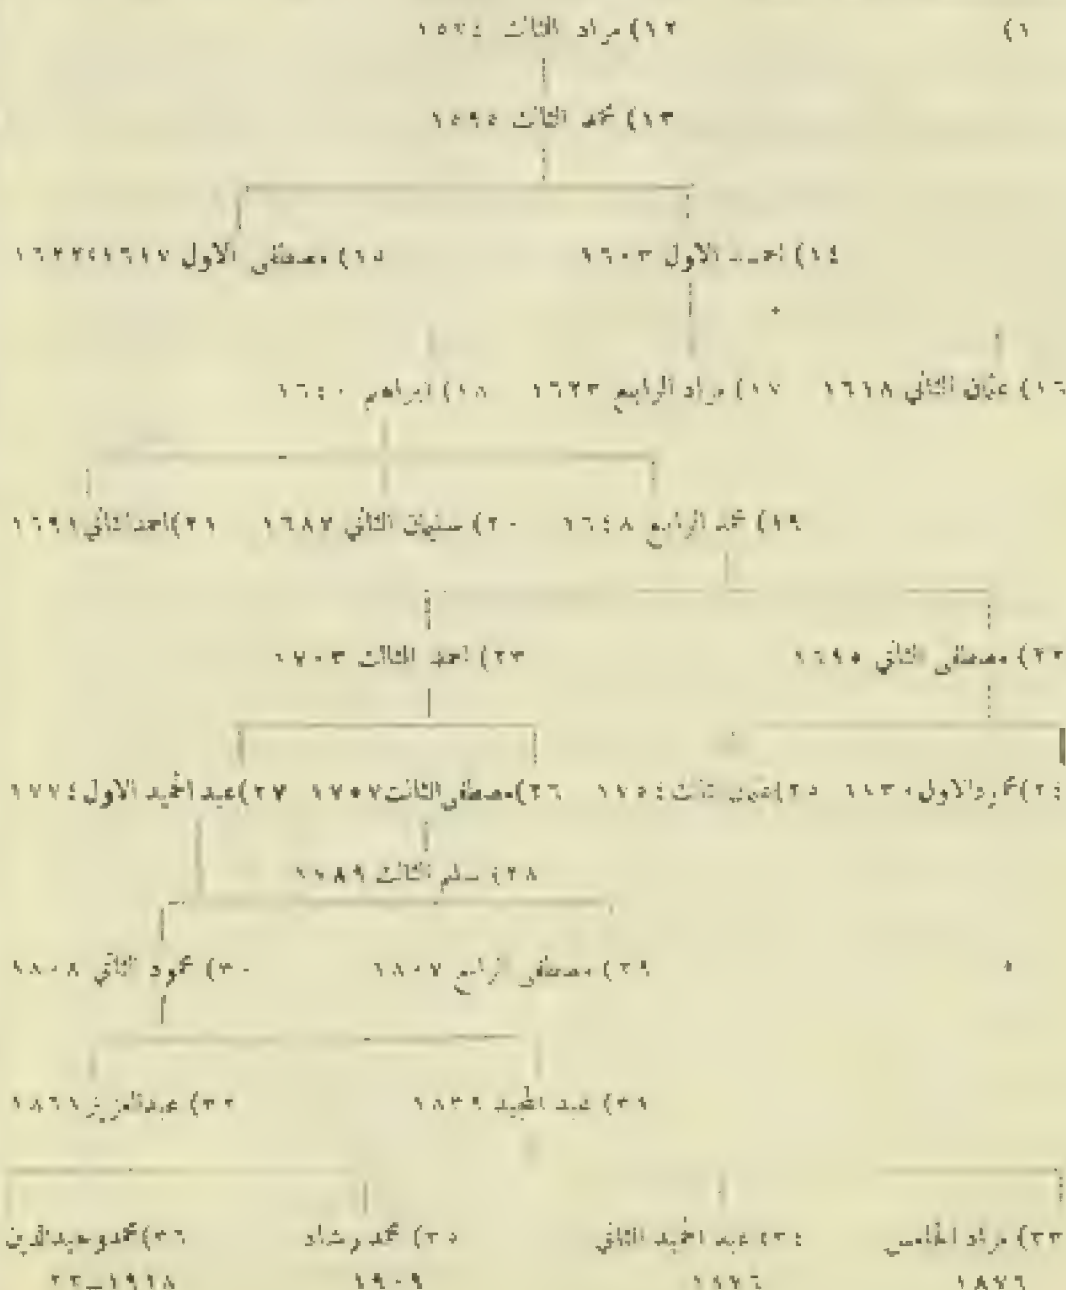 ١٢) مراد الثالث ١٥٧٤
١٣) محمد الثالث ١٥٩٥
١٤) احمد الاول ١٦٠٣ ١٥) مصطفى الاول ١٦١٧؛١٦٢٢
١٦) عثمان الثاني ١٦١٨ ١٧) مراد الرابع ١٦٢٣ ١٨) ابراهيم ١٦٤٠
١٩) محمد الرابع ١٦٤٨ ٢٠) سليمان الثاني ١٦٨٧ ٢١) احمد الثاني ١٦٩١
٢٢) مصطفى الثاني ١٦٩٥ ٢٣) احمد الثالث ١٧٠٣
٢٤) محمود الاول ١٧٣٠ ٢٥) عثمان ثالث ١٧٥٤ ٢٦) مصطفى الثالث ١٧٥٧ ٢٧) عبد الحميد الاول ١٧٧٤
٢٨) سليم الثالث ١٧٨٩
٢٩) مصطفى الرابع ١٨٠٧ ٣٠) محمود الثاني ١٨٠٨
٣١) عبد المجيد ١٨٣٩ ٣٢) عبدالعزيز ١٨٦١
٣٣) مراد الخامس ٣٤) عبد الحميد الثاني ٣٥) محمد رشاد ٣٦) محمد وحيدالدين
١٨٧٦ ١٨٧٦ ١٩٠٩ ١٩١٨–٢٢